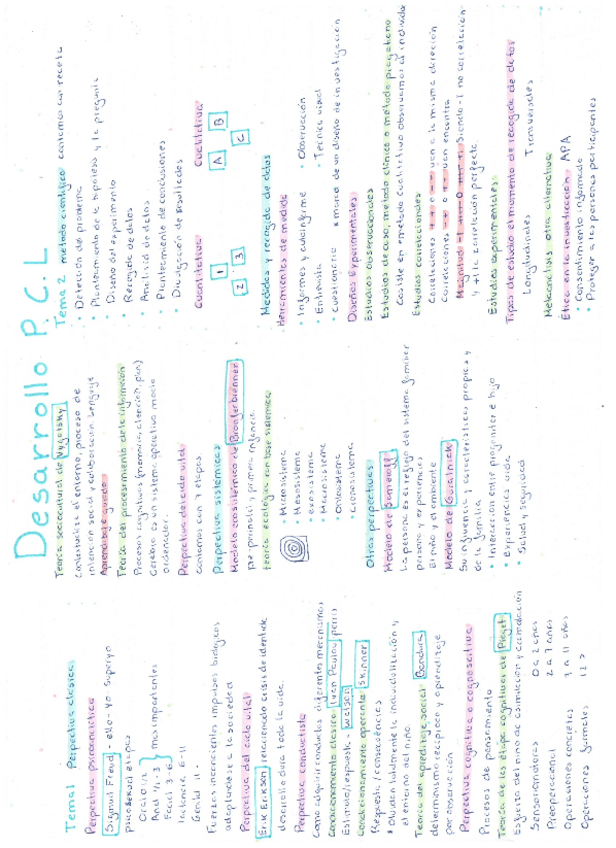 Desarrollo P.C.L
Tema 1 Perpectiva clásica
Perpectiva psicoanalítica
Sigmund Freud - ello - yo - superyo
psicosexual etapas
Oral 0/1
Anal 1/2-3
Falal 3-6
mas importantes
latencia 6-11
Genital 11-
Fuerzas inconscientes impulsos biológicos
adaptandose a la sociedad
Perpectiva del ciclo vital
Erik Erikson relacionado crisis de identidad
desarrollo dura toda la vida.
Perpectiva conductista
Como adquirir conductas diferentes mecanismos
Condicionamiento clásico Ivan Paulov perro
Estimulo/respuesta. Watson
Condicionamiento operante Skinner
Respuesta / consecuencias
* Olvidan totalmente la individualización y
el entorno del niño.
Teoria del aprendizaje social Bandura
determinismo reciproco y aprendizaje
por observación
Perpectiva cognitiva o cognoscitiva
Procesos de pensamiento
Teoria de las etapas cognitivas de Piaget
Esfuerzo del niño de asimilación y acomodación
Sensoriomotoras 0 a 2 años
Preoperacional 2 a 7 años
Operaciones concretas 7 a 11 años
Operaciones formales 12 >
Teoria sociocultural de Vygotsky
Contextual el entorno, proceso de
intención social y colaboración. Lenguaje
Aprendizaje guiado
Teoria del procesamiento de la información
Procesos cognitivos (memoria, atención, plan)
Cerebro es un sistema operativo macio
ordenador.
Perpectiva del ciclo vital
contamos con 7 etapas
Perpectiva sistémicas
Modelo ecosistémico de Bronferbrenner
pre-prenatal y primera infancia
teoria ecologica con base sistemica
• Microsistema
• Mesosistema
• exosistema
• Macrosistema
• Ontosistema
• Cronosistema
Otras perpectivas
Modelo de Sameroff
La persona es el reflejo del sistema familiar
persona y experiencias
El niño y el ambiente
Modelo de Guralnick
Su influencia y caracteristicas propias y
de la familia
• Interaccion entre progenitor e hijo
• Experiencias vida
• Salud y seguridad
Tema 2 metodo cientifico contamos con receta
• Detección de problema
• Planteamiento de la hipotesis y la pregunta
• Diseño del experimento
• Recogida de datos
• Analisis de datos
• Planteamiento de conclusiones
• Divulgación de resultados
Cuantitativa Cualitativa
1 2 3 A B C
Medidas y recogida de datos
Herramientas de medida
• Informes y autoinforme • Observación
• Entrevista • Tecnica visual
• cuestionario * marco de un diseño de investigación
Diseños Experimentales
Estudios observacionales
Estudios de caso, metodo clinico o metodo piagetiano
Cosiste en metodo cualitativo observamos al individuo
Estudios correlacionales
Correlaciones + + o - - van a la misma dirección
correlaciones - + o + - van encontra
Magnitud -1 0 +1 Siendo -1 no correlacion
y +1 la correlacion perfecta.
Estudios experimentales
Tipos de estudio el momento de recogida de datos
Longitudinales Transversales
Metaanalisis otra alternativa
Ética en la investigación APA
• Consentimiento informado
• Proteger a las personas participantes